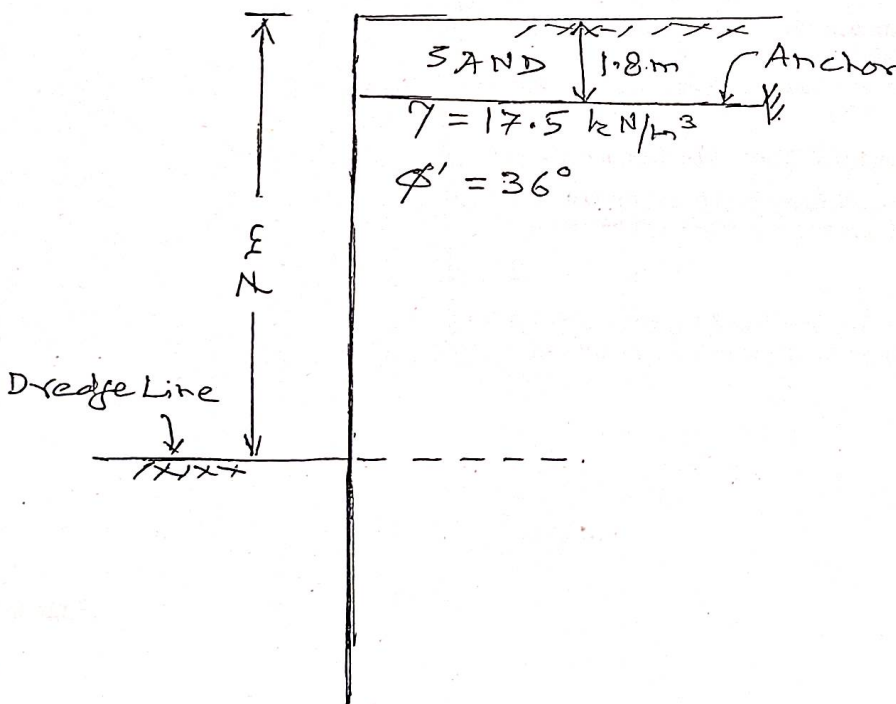 SAND 1.8m Anchor
γ = 17.5 kN/m³
φ' = 36°
Dredge Line